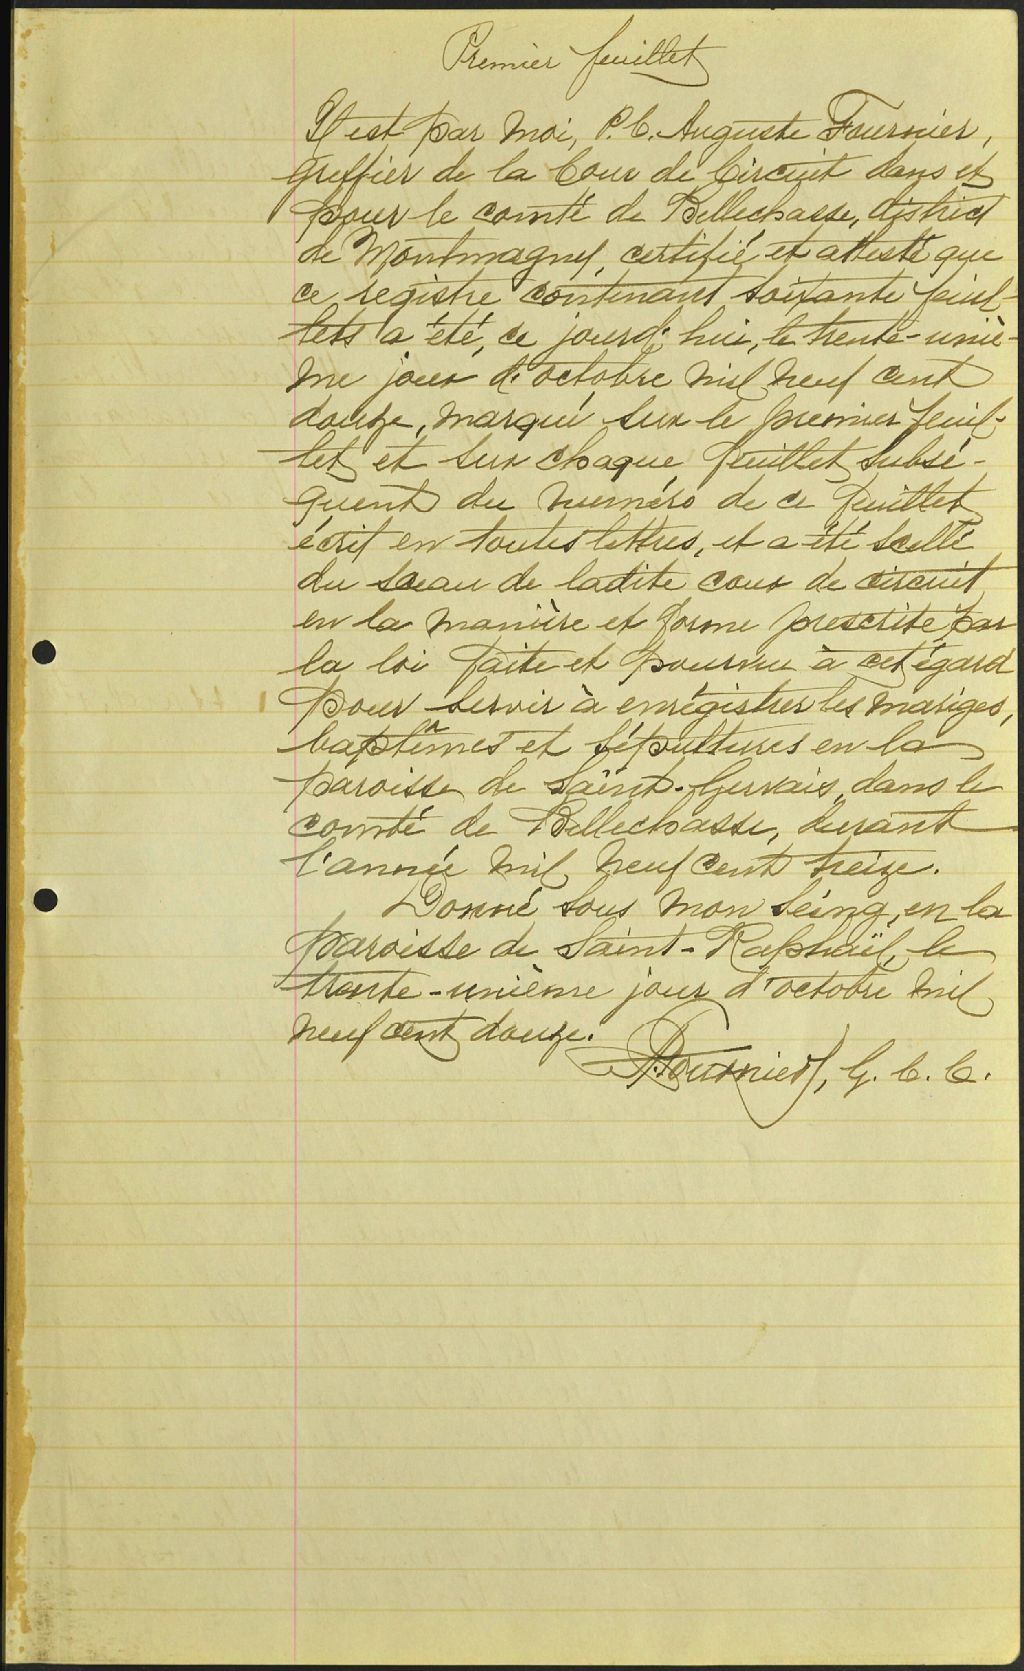 Premier feuillet
Il est par moi, P. C. Auguste Fournier,
greffier de la Cour de Circuit dans et
pour le comté de Bellechasse, district
de Montmagny, certifié et attesté que
ce registre contenant soixante feuil-
lets a été, ce jourd'hui, le trente-uniè-
me jour d'octobre mil neuf cent
douze, marqué sur le premier feuil-
let et sur chaque feuillet subsé-
quent du numéro de ce feuillet
écrit en toutes lettres, et a été scellé
du sceau de ladite cour de circuit
en la manière et forme prescrite par
la loi faite et pourvue à cet égard
pour servir à enrégistrer les mariges,
baptêmes et sépultures en la
paroisse de Saint-Gervais, dans le
comté de Bellechasse, durant
l'année mil neuf cent treize.
Donné sous mon seing, en la
paroisse de Saint-Raphaël, le
trente-unième jour d'octobre mil
neuf cent douze.
Fournier, G. C. C.